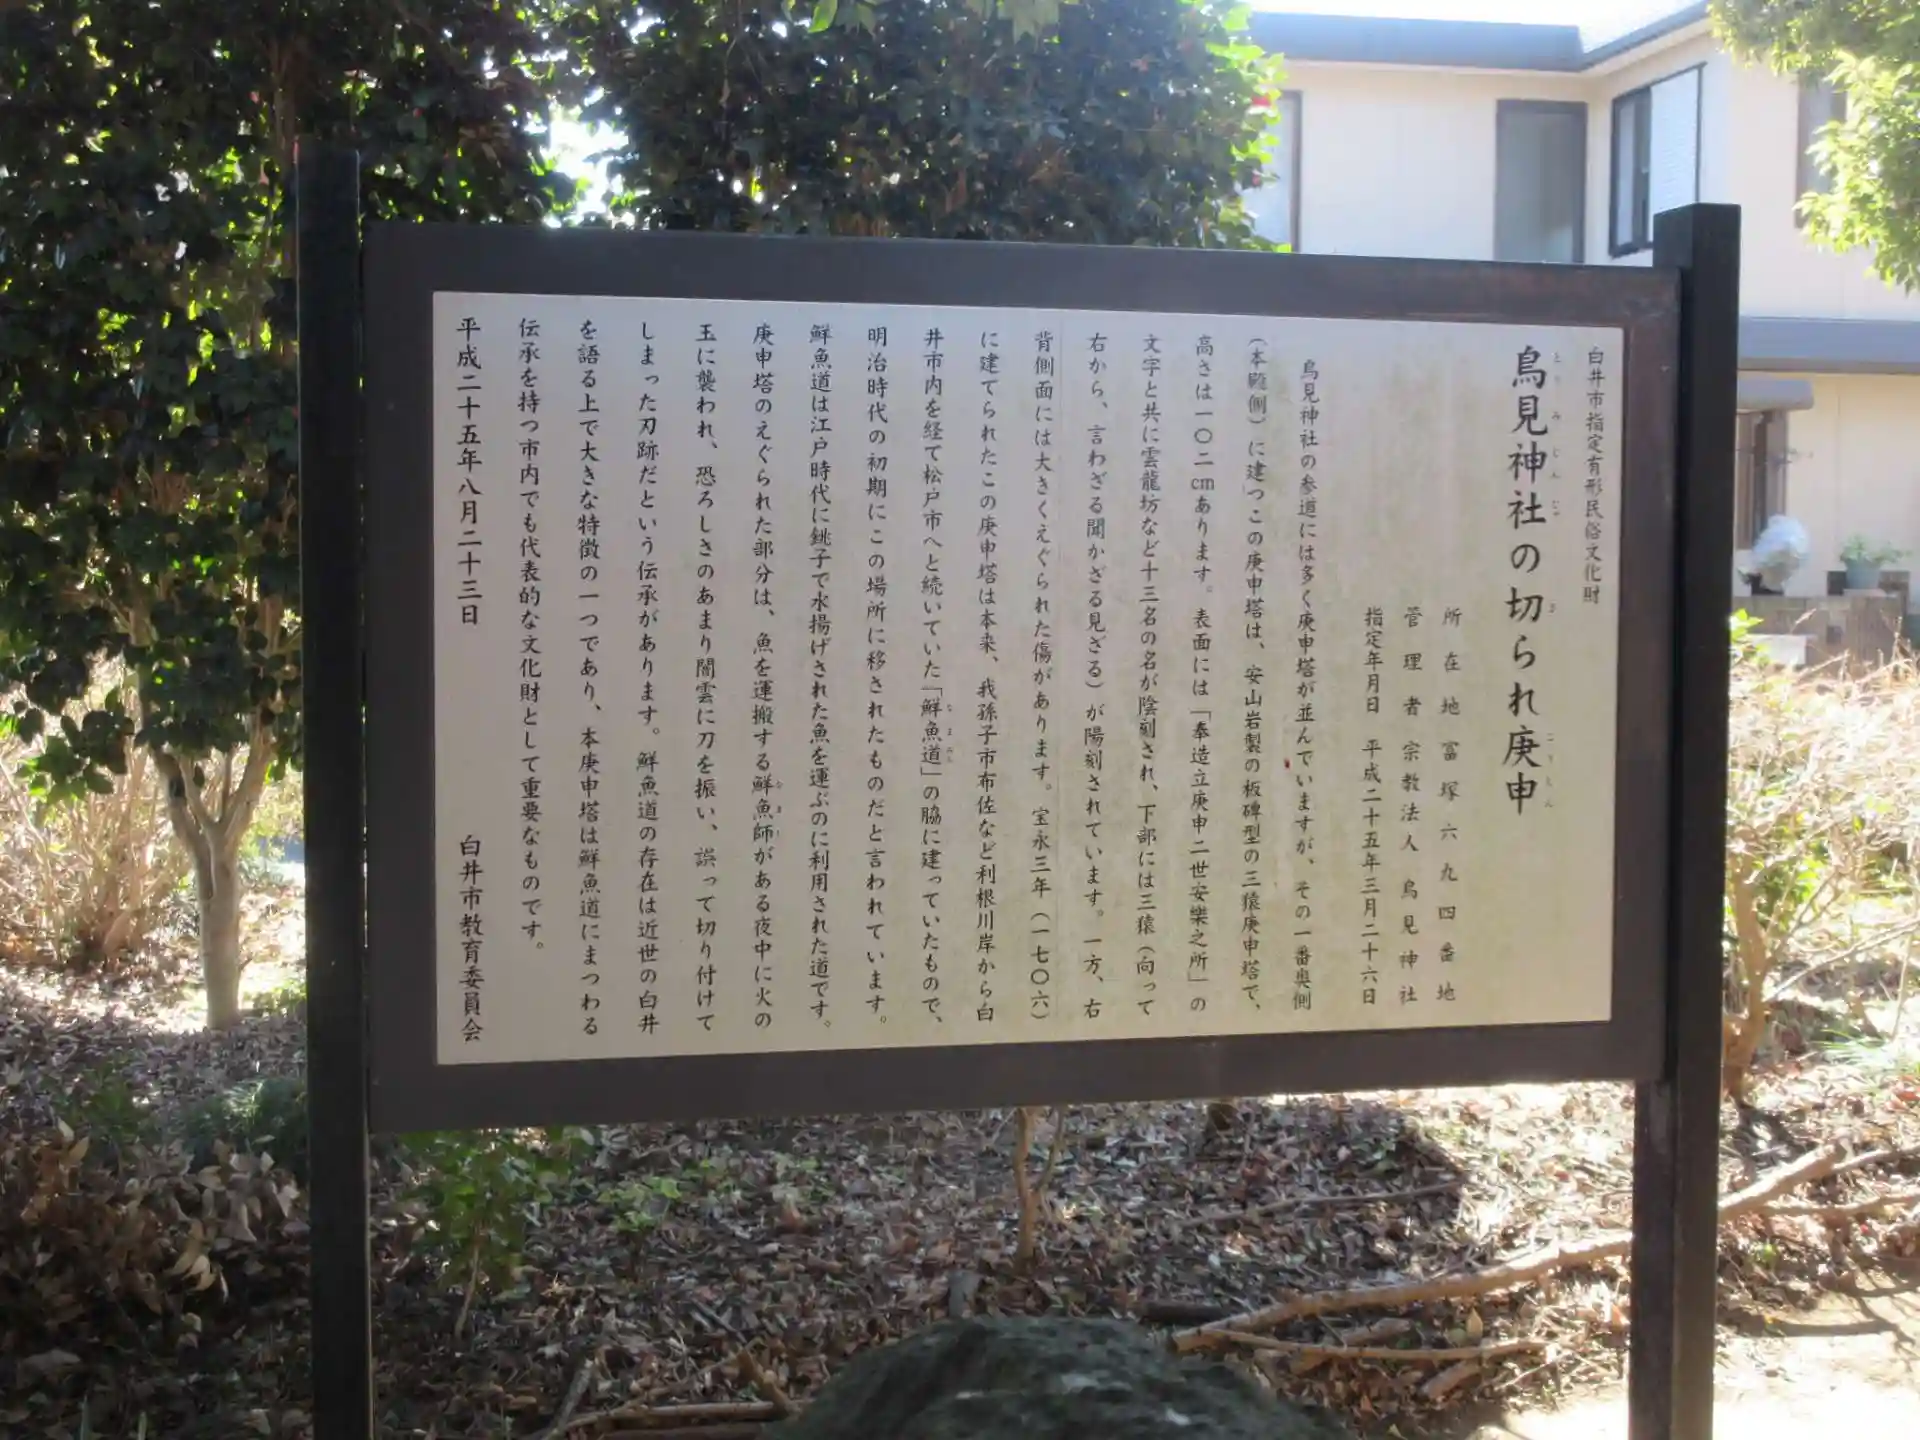 白井市指定有形民俗文化財
鳥見神社の切られ庚申
とりみじんじゃ
き
こうしん
所在地 富塚六九四番地
管理者 宗教法人 鳥見神社
指定年月日 平成二十五年三月二十六日
鳥見神社の参道には多く庚申塔が並んでいますが、その一番奥側
(本殿側)に建つこの庚申塔は、安山岩製の板碑型の三猿庚申塔で、
高さは一〇二cmあります。表面には「奉造立庚申二世安樂之所」の
文字と共に雲龍坊など十三名の名が陰刻され、下部には三猿(向って
右から、言わざる聞かざる見ざる)が陽刻されています。一方、右
背側面には大きくえぐられた傷があります。宝永三年(一七〇六)
に建てられたこの庚申塔は本来、我孫子市布佐など利根川岸から白
井市内を経て松戸市へと続いていた「鮮魚道」の脇に建っていたもので、
なまみち
明治時代の初期にこの場所に移されたものだと言われています。
鮮魚道は江戸時代に銚子で水揚げされた魚を運ぶのに利用された道です。
庚申塔のえぐられた部分は、魚を運搬する鮮魚師がある夜中に火の
なまし
玉に襲われ、恐ろしさのあまり闇雲に刀を振い、誤って切り付けて
しまった刃跡だという伝承があります。鮮魚道の存在は近世の白井
を語る上で大きな特徴の一つであり、本庚申塔は鮮魚道にまつわる
伝承を持つ市内でも代表的な文化財として重要なものです。
平成二十五年八月二十三日 白井市教育委員会